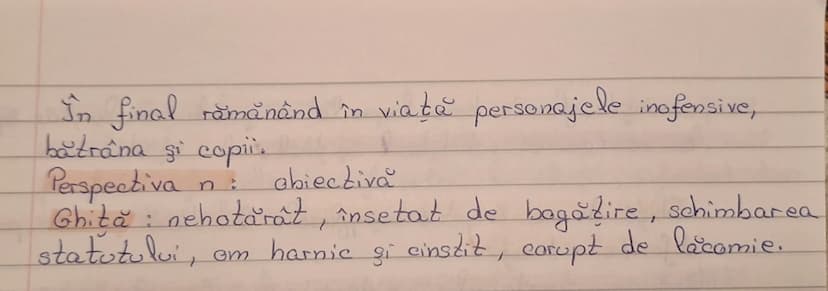 În final rămănând în viață personajele inofensive,
bătrâna și copii.
Perspectiva n : obiectivă
Ghiță : nehotărât, însetat de bogățire, schimbarea
statutului, om harnic și cinstit, corupt de lăcomie.